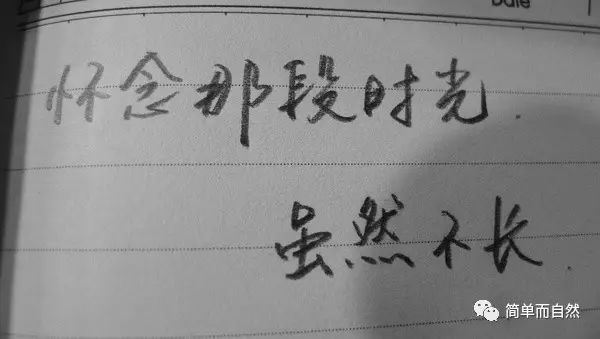 Date
怀念那段时光.
虽然不长.
简单而自然